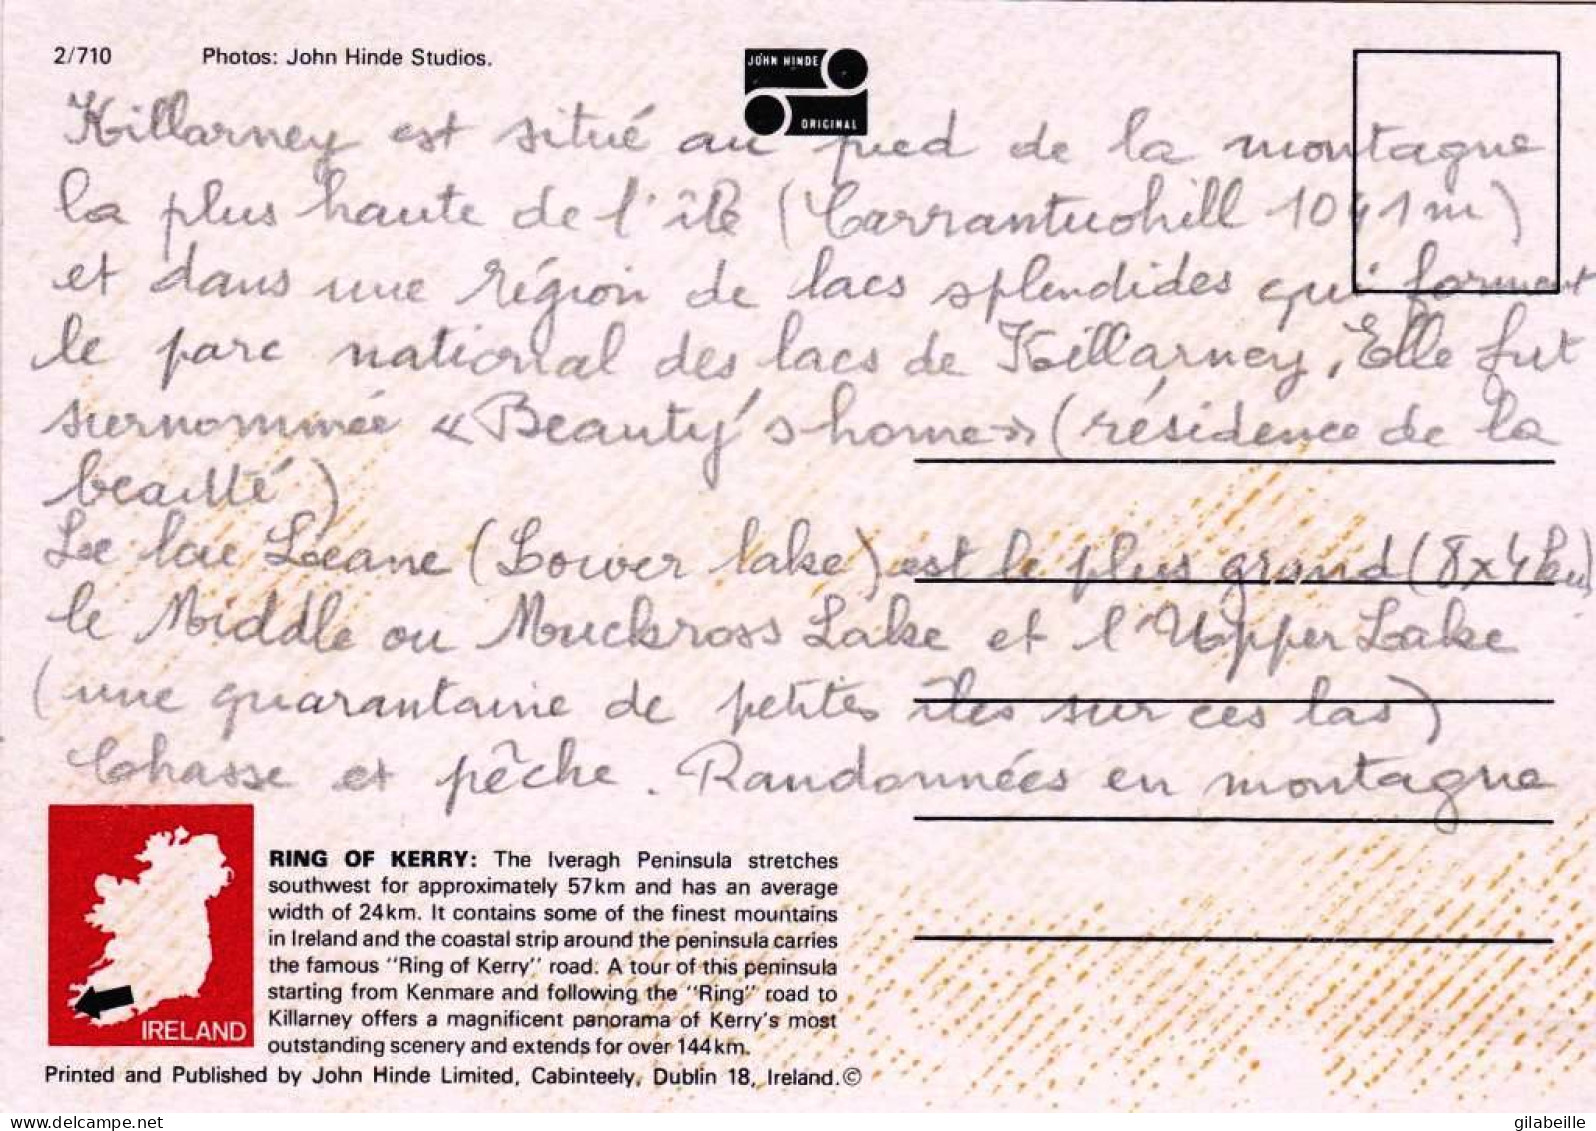 2/710 Photos: John Hinde Studios.
JOHN HINDE
ORIGINAL
Killarney est situé au pied de la montagne
la plus haute de l'île (Carrantuohill 1041m)
et dans une région de lacs splendides qui forment
le parc national des lacs de Killarney. Elle fut
surnommée « Beauty's home » (résidence de la
beauté)
Le lac Leane (Lower lake) est le plus grand (8x4km)
le Middle ou Muckross Lake et l'Upper Lake
(une quarantaine de petites îles sur ces las)
Chasse et pêche. Randonnées en montagne
RING OF KERRY: The Iveragh Peninsula stretches
southwest for approximately 57km and has an average
width of 24km. It contains some of the finest mountains
in Ireland and the coastal strip around the peninsula carries
the famous "Ring of Kerry" road. A tour of this peninsula
starting from Kenmare and following the "Ring" road to
Killarney offers a magnificent panorama of Kerry's most
outstanding scenery and extends for over 144km.
IRELAND
Printed and Published by John Hinde Limited, Cabinteely, Dublin 18, Ireland.©
delcampe.net
gilabeille